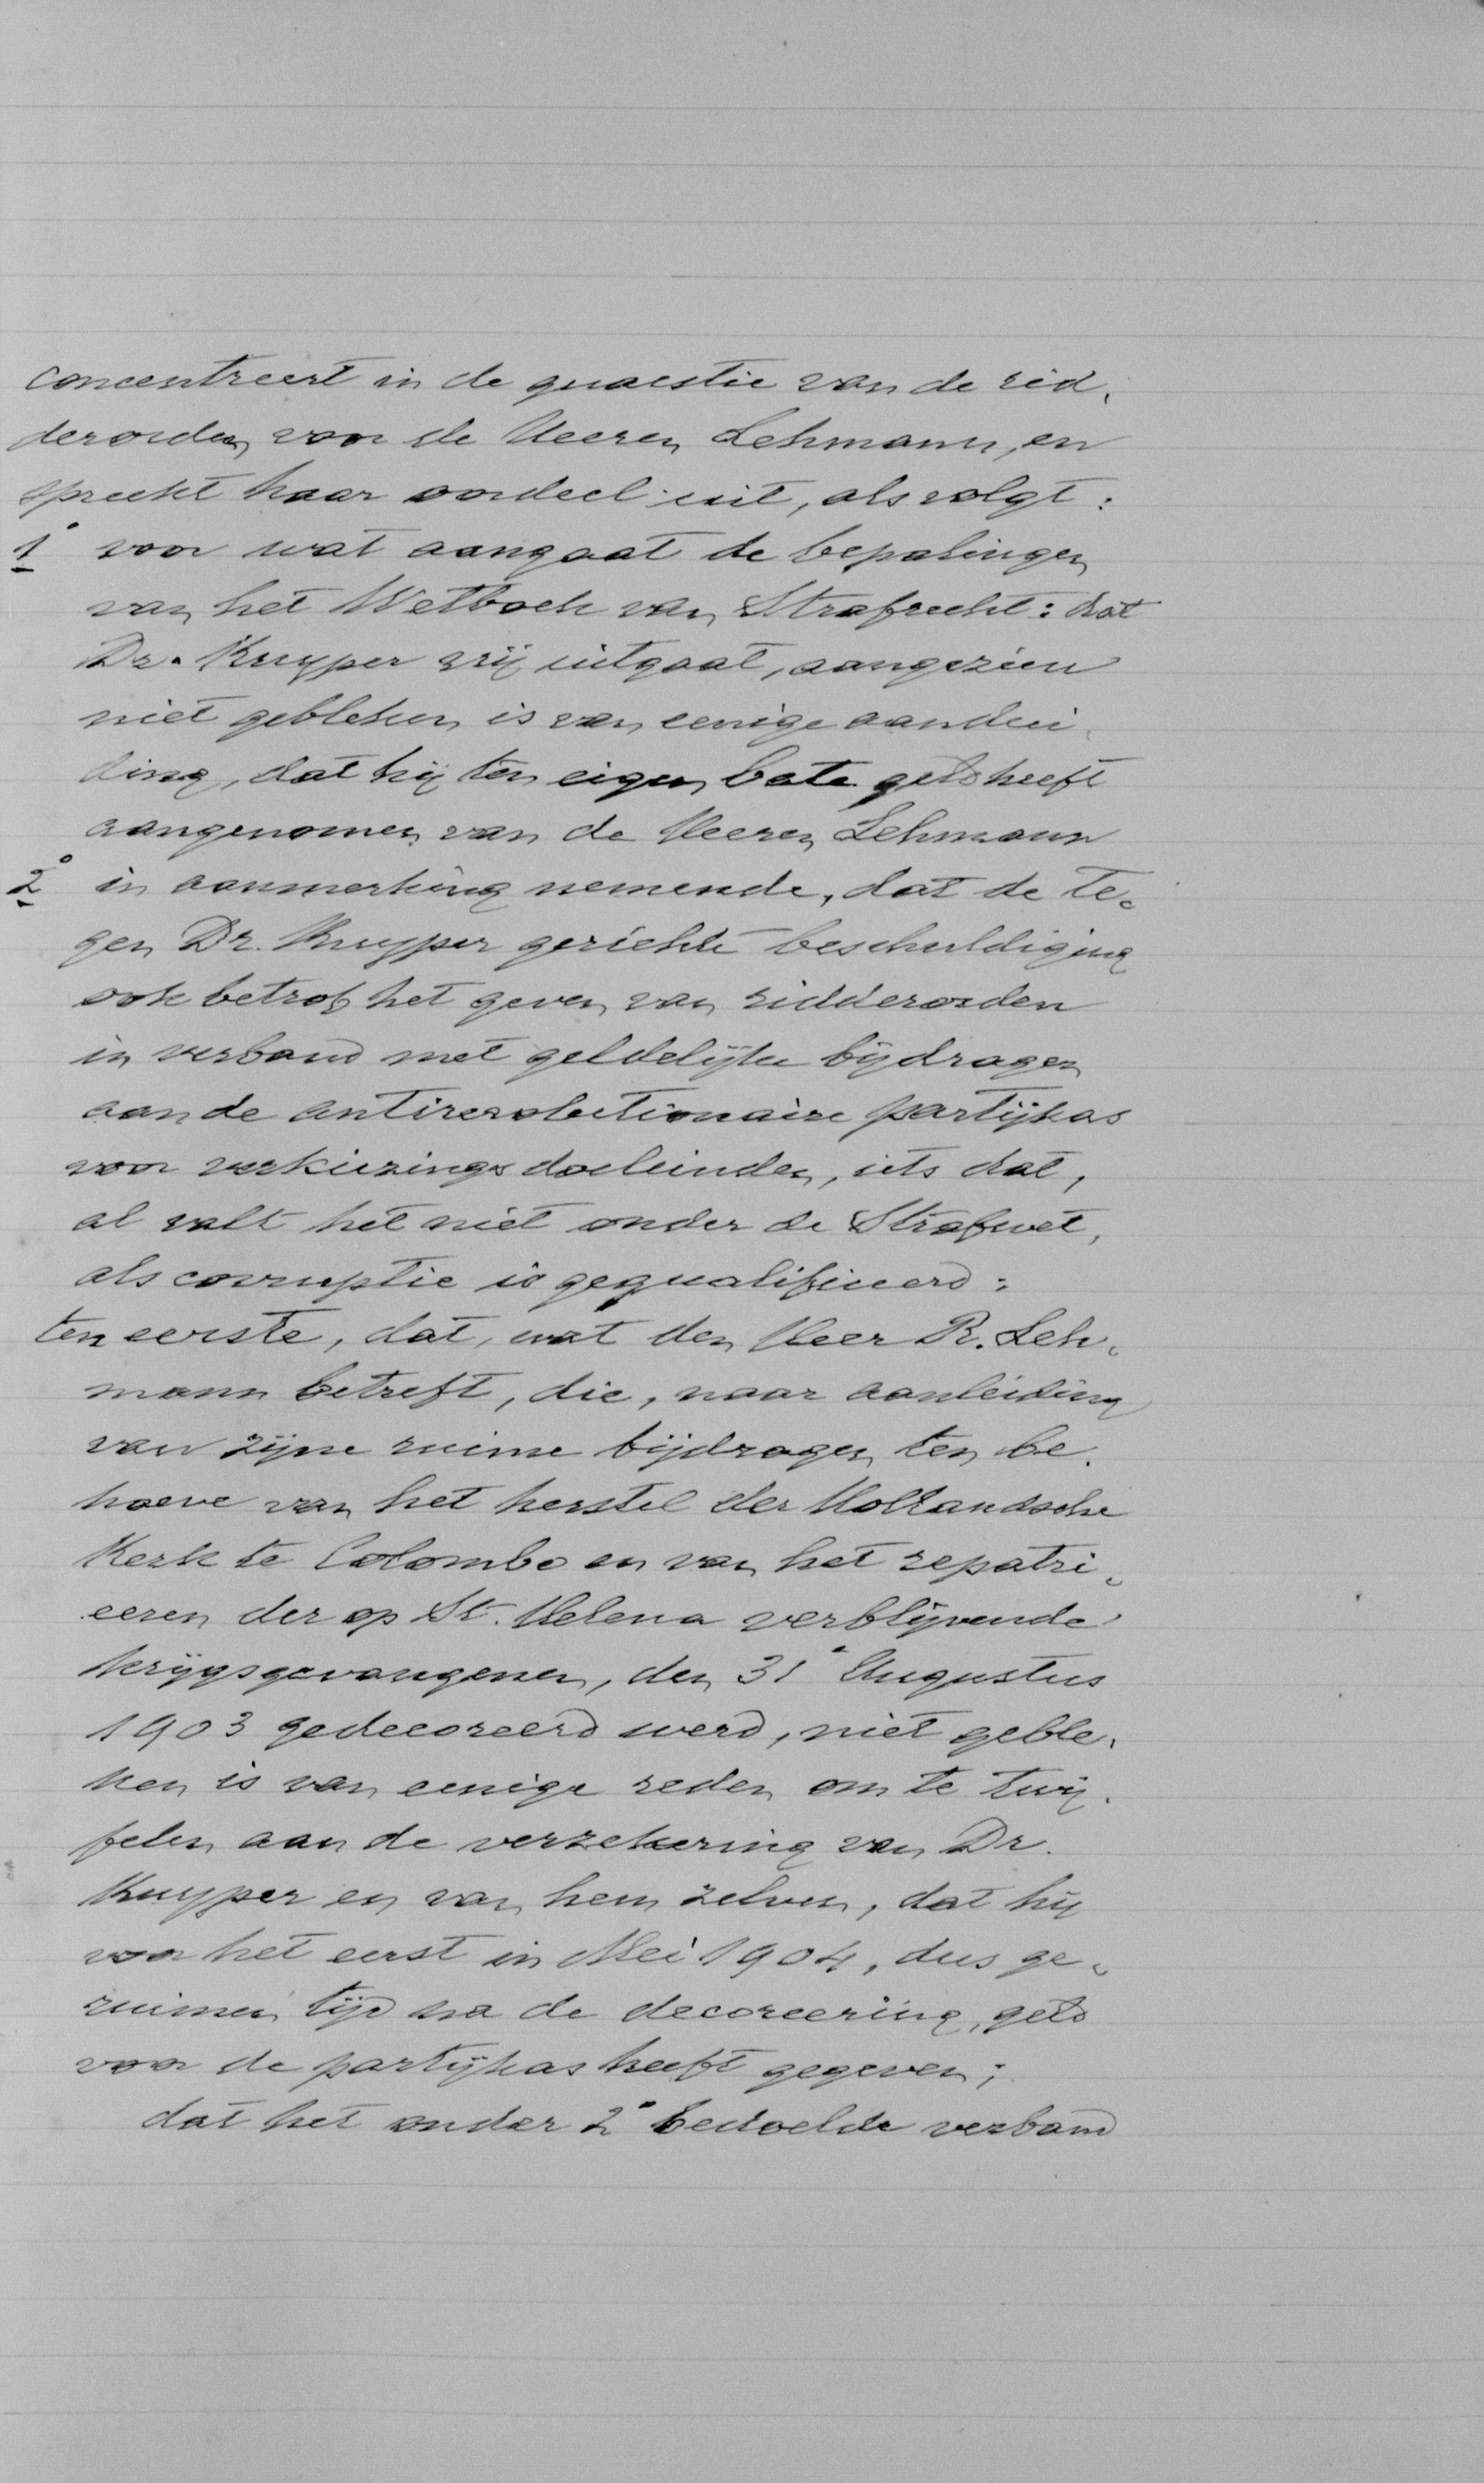 concentreert in de quaestie van de rid-
derorden voor de Heeren Lehmann, en
spreekt haar oordeel uit, als volgt:
1° voor wat aangaat de bepalingen
van het Wetboek van Strafrecht: dat
Dr. Kuyper vrij uitgaat, aangezien
niet gebleken is van eenige aandui-
ding, dat hij ten eigen bate geld heeft
aangenomen van de Heeren Lehmann
2° in aanmerking nemende, dat de te-
gen Dr. Kuyper gerichte beschuldiging
ook betrof het geven van ridderorden
in verband met geldelijke bijdragen
aan de antirevolutionaire partijkas
voor verkiezingsdoeleinden, iets dat,
al valt het niet onder de Strafwet,
als corruptie is gequalificeerd:
ten eerste, dat, wat den Heer R. Leh-
mann betreft, die, naar aanleiding
van zijne ruime bijdragen ten be-
hoeve van het herstel der Hollandsche
Kerk te Colombo en van het repatri-
eeren der op St. Helena verblijvende
krijgsgevangenen, den 31° Augustus
1903 gedecoreerd werd, niet geble-
ken is van eenige reden om te twij-
felen aan de verzekering van Dr.
Kuyper en van hem zelven, dat hij
voor het eerst in Mei 1904, dus ge-
ruimen tijd na de decoreering, geld
voor de partijkas heeft gegeven;
dat het onder 2° bedoelde verband